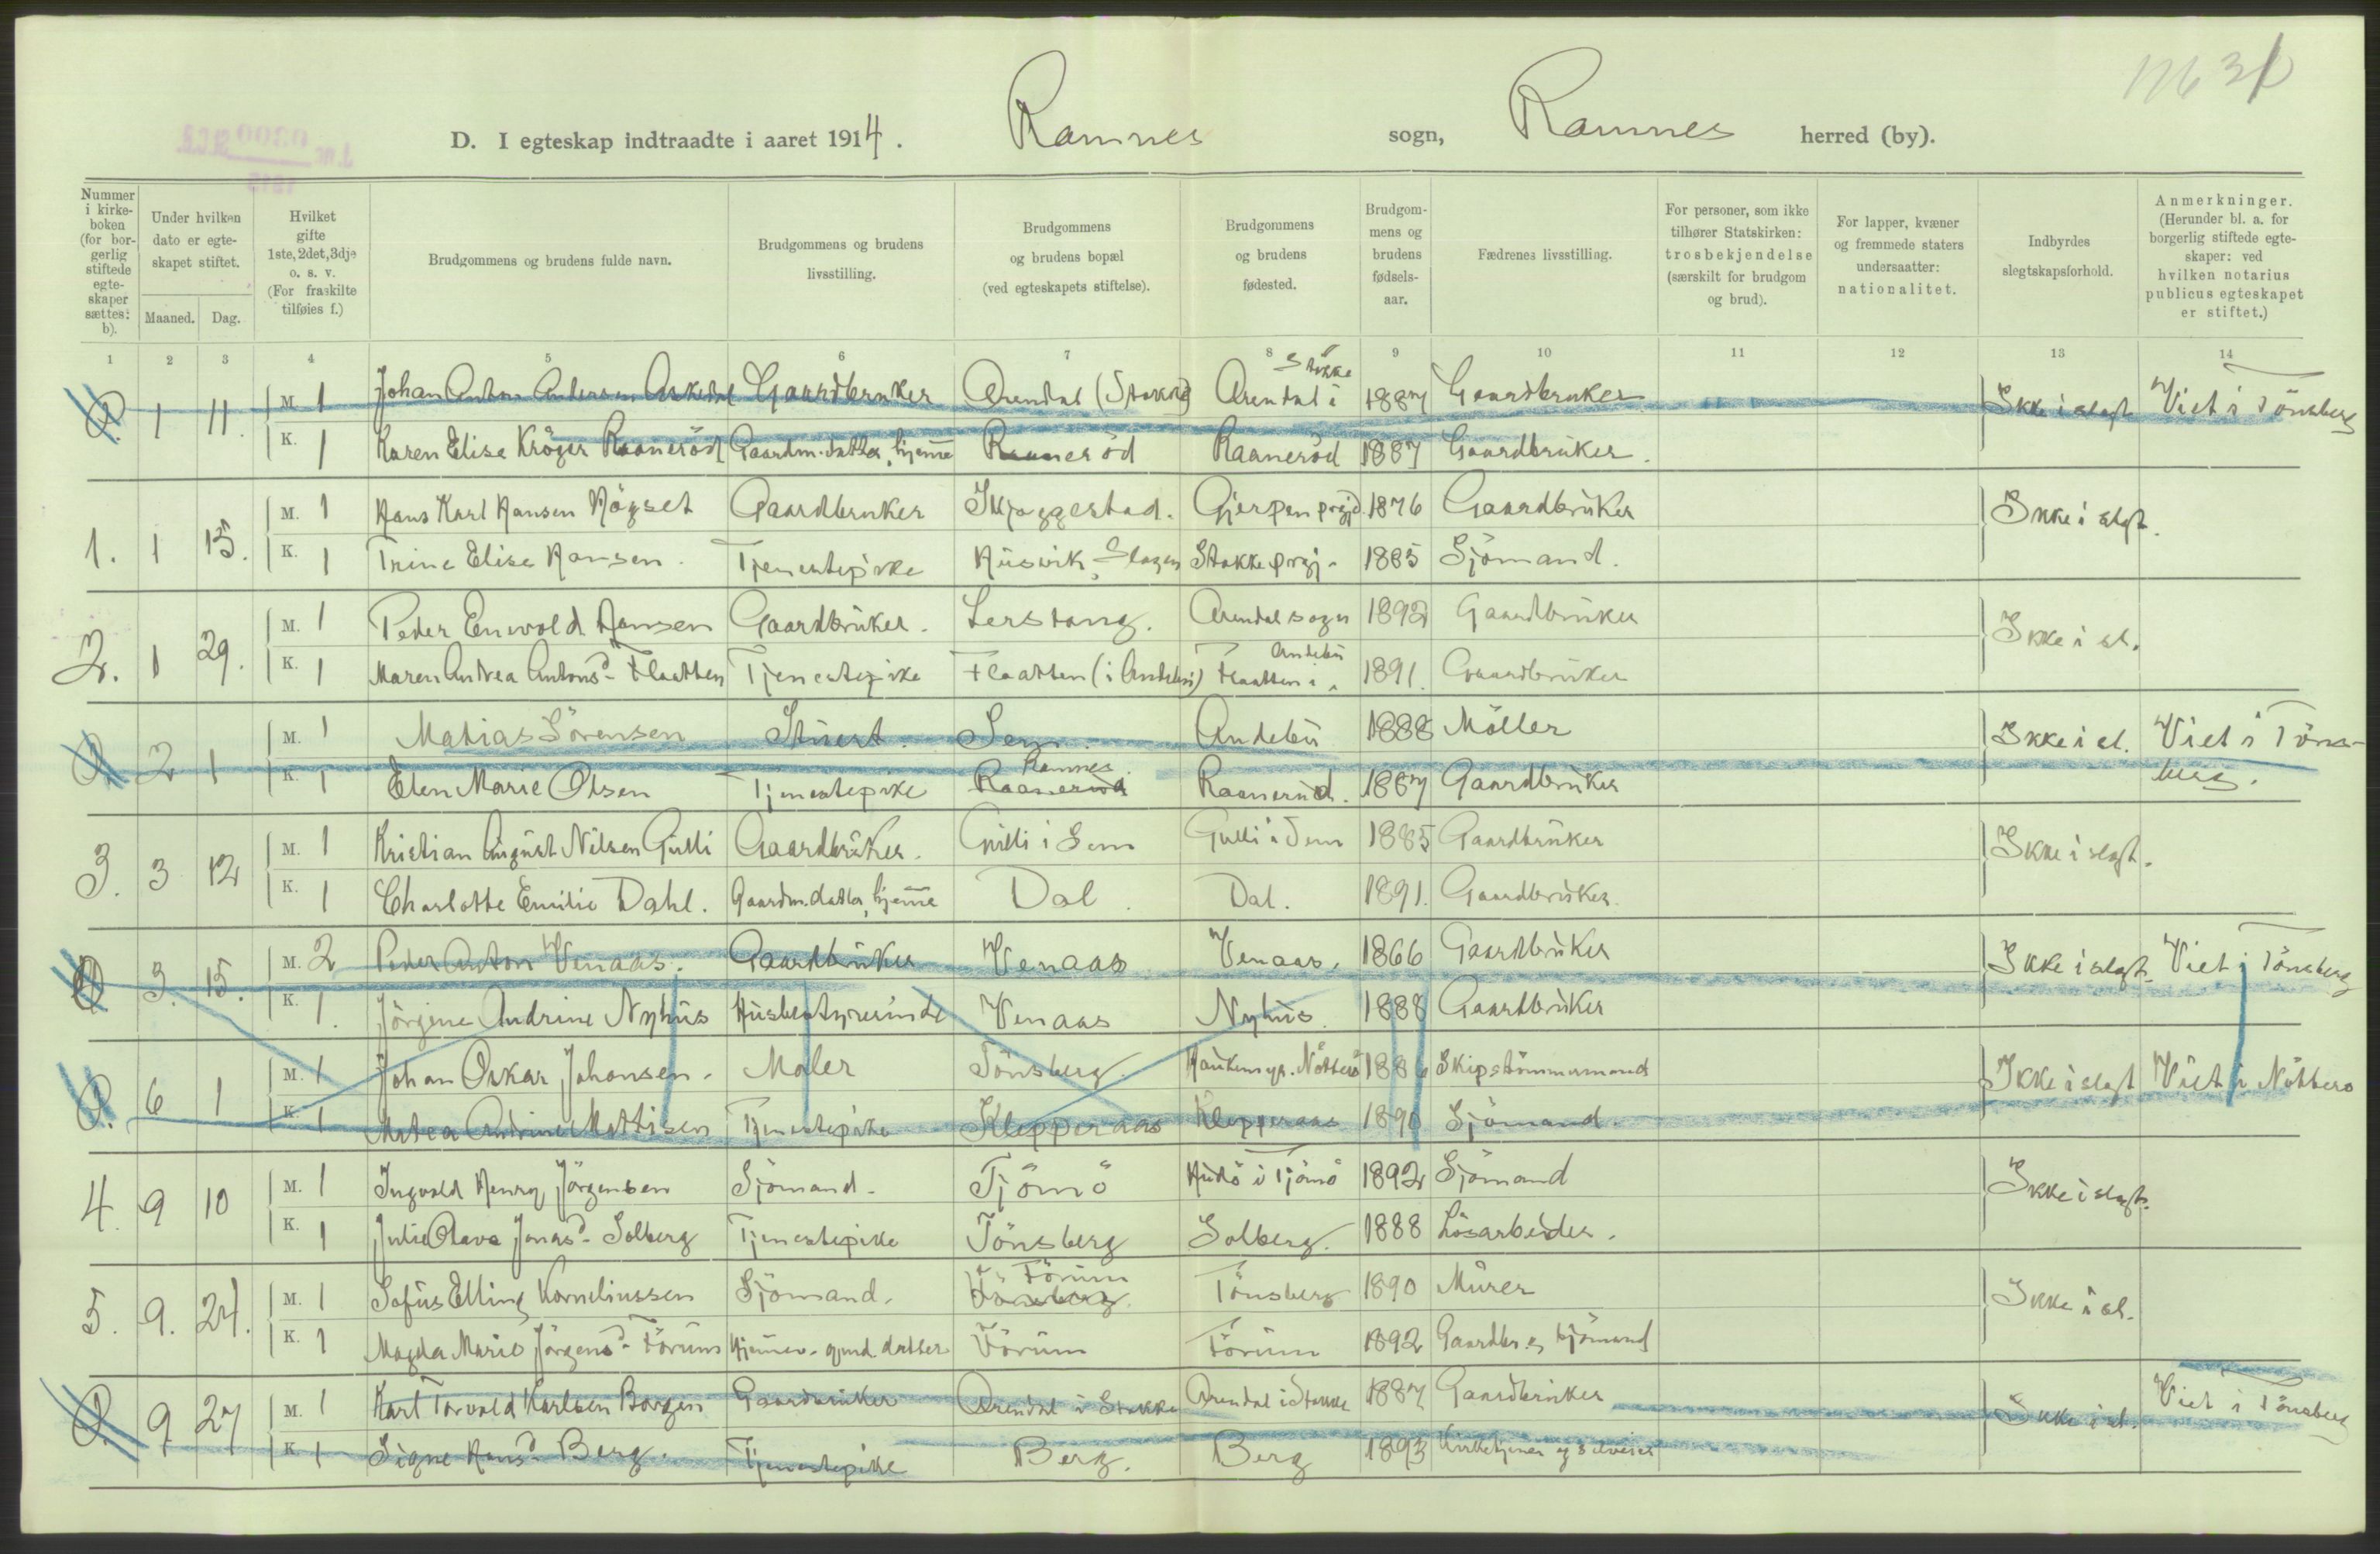 D. I egteskap indtraadte i aaret 1914. Ramnes sogn, Ramnes herred (by).
Nummer i kirke-boken (for bor-gerlig stiftede egte-skaper sættes: b). Under hvilken dato er egte-skapet stiftet. Maaned. Dag. Hvilket gifte 1ste, 2det, 3dje o. s. v. (For fraskilte tilføies f.) Brudgommens og brudens fulde navn. Brudgommens og brudens livsstilling. Brudgommens og brudens bopæl (ved egteskapets stiftelse). Brudgommens og brudens fødested. Brudgom-mens og brudens fødsels-aar. Fædrenes livsstilling. For personer, som ikke tilhører Statskirken: trosbekjendelse (særskilt for brudgom og brud). For lapper, kvæner og fremmede staters undersaatter: nationalitet. Indbyrdes slegtskapsforhold. Anmerkninger. (Herunder bl. a. for borgerlig stiftede egte-skaper: ved hvilken notarius publicus egteskapet er stiftet.)
1 2 3 4 5 6 7 8 9 10 11 12 13 14
1 11. M. 1 Johan Anton Andersen Askedal Gaardbruker Arendal (Stokke) Arendal i Stokke 1887 Gaardbruker Ikke i slegt Viet i Tönsberg
K. 1 Karen Elise Kröger Raaneröd Gaardm.datter, hjemme Raaneröd Raaneröd 1887 Gaardbruker.
1. 1 15. M. 1 Hans Karl Hansen Högset Gaardbruker Skjaggestad. Gjerpen prgjd. 1876 Gaardbruker Ikke i slegt.
K. 1 Trine Elise Hansen. Tjenestepike Husvik, Slagen Stokke prgj. 1885 Sjömand.
2. 1 29. M. 1 Peder Enevold Hansen Gaardbruker. Lerstang. Arendal sogn 1892 Gaardbruker Ikke i sl.
K. 1 Maren Andrea Antonsd. Flaatten Tjenestepike Flaatten (i Andebu) Flaatten i Andebu 1891. Gaardbruker
2 1 M. 1 Matias Sörensen Stuert. Sem. Andebu 1888 Möller Ikke i sl. Viet i Töns-
K. 1 Elen Marie Olsen Tjenestepike Raaneröd Ramnes. Raaneröd. 1887 Gaardbruker berg.
3. 3 12 M. 1 Kristian August Nilsen Gulli Gaardbruker. Gulli i Sem Gulli i Sem 1885 Gaardbruker Ikke i slegt.
K. 1 Charlotte Emilie Dahl. Gaardm.datter, hjemme Dal. Dal. 1891. Gaardbruker.
3. 15. M. 2 Peder Anton Venaas. Gaardbruker Venaas Venaas. 1866 Gaardbruker Ikke i slegt. Viet i Tönsberg
K. 1. Jörgine Andrine Nyhus Husbestyrerinde Venaas Nyhus. 1888 Gaardbruker
6 1 M. 1 Johan Oskar Johansen. Maler Tönsberg. 1886 Skipstömmermand Ikke i slegt Viet i Nötterö
K. 1 Matea Andrine Mattisen Tjenestepike Klepperaas Klepperaas 1890 Sjömand.
4. 9 10 M. 1 Ingvald Henry Jörgensen Sjömand. Tjömö Hudö i Tjömö 1892 Sjömand Ikke i slegt.
K. 1 Julie Olava Jonasd. Solberg Tjenestepike Tönsberg Solberg. 1888 Lösarbeider.
5. 9. 24. M. 1 Sofus Elling Korneliussen Sjömand. Tönsberg. Förum Tönsberg 1890 Murer Ikke i sl.
K. 1 Magda Marie Jörgensd. Förum Hjemmev. gmd. datter Förum Förum 1892 Gaardbr. og sjömand
9 27 M. 1 Karl Torvald Karlsen Borgen Gaardbruker Arendal i Stokke Arendal i Stokke 1887 Gaardbruker Ikke i sl. Viet i Tönsberg
K. 1 Signe Hansd. Berg. Tjenestepike Berg. Berg 1893 Kirketjener og selveier